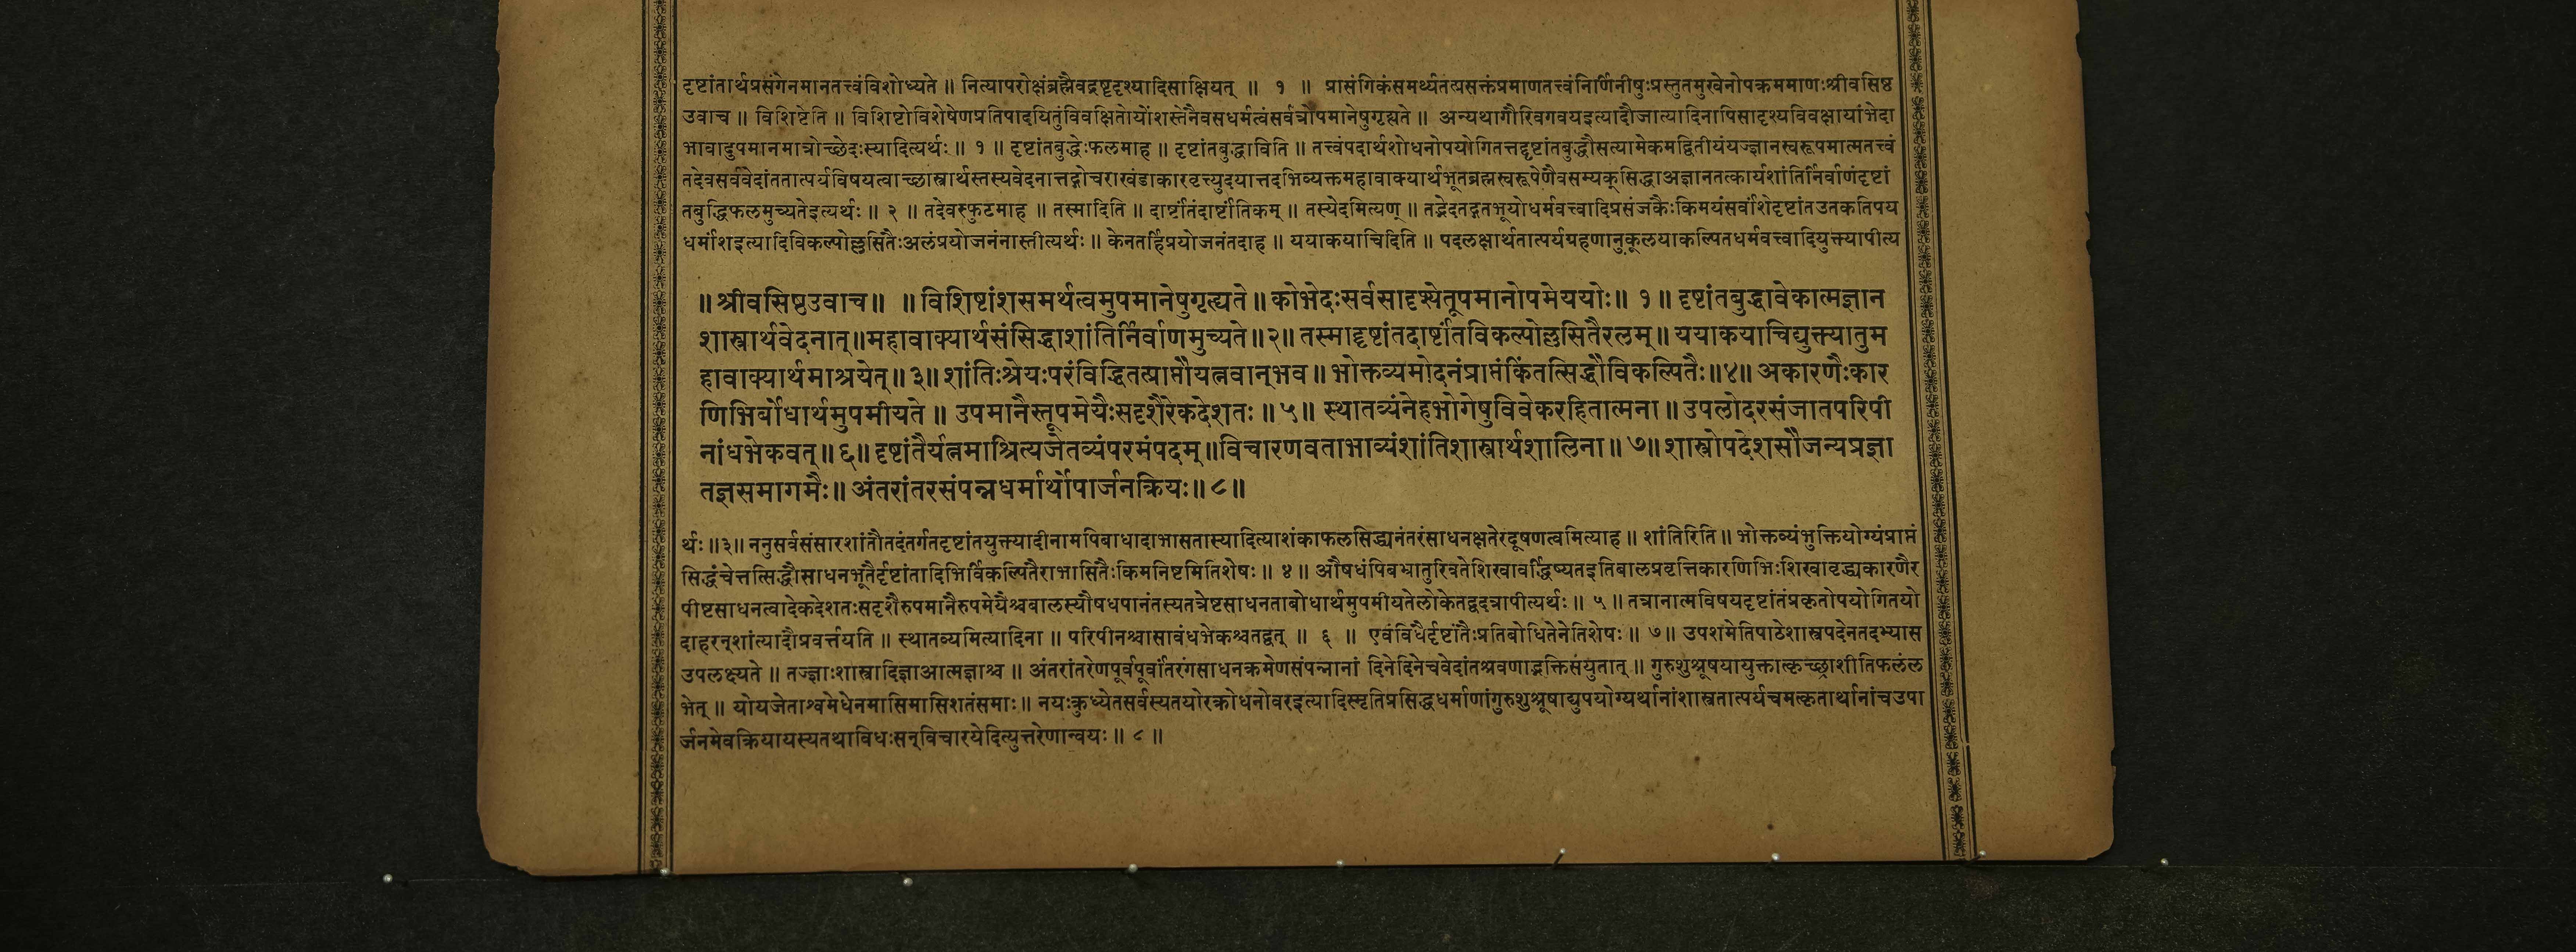 दृष्टांतार्थप्रसंगेनमानतत्त्वंविशोध्यते ॥ नित्यापरोक्षंब्रह्मैवद्रष्टृदृश्यादिसाक्षियत् ॥ १ ॥ प्रासंगिकंसमर्थ्यतत्प्रसक्तंप्रमाणतत्त्वंनिर्णिनीषुःप्रस्तुतमुखेनोपक्रममाणःश्रीवसिष्ठ
उवाच ॥ विशिष्टेति ॥ विशिष्टोविशेषेणप्रतिपादयितुंविवक्षितोयोंशस्तेनैवसधर्मत्वंसर्वत्रोपमानेषुगृह्यते ॥ अन्यथागौरिवगवयइत्यादौजात्यादिनापिसादृश्यविवक्षायांभेदा
भावादुपमानमात्रोच्छेदःस्यादित्यर्थः ॥ १ ॥ दृष्टांतबुद्धेःफलमाह ॥ दृष्टांतबुद्धाविति ॥ तत्त्वंपदार्थशोधनोपयोगितत्तद्दृष्टांतबुद्धौसत्यामेकमद्वितीयंयज्ज्ञानस्वरूपमात्मतत्त्वं
तदेवसर्ववेदांततात्पर्यविषयत्वाच्छास्त्रार्थस्तस्यवेदनात्तद्गोचराखंडाकारवृत्त्युदयात्तदभिव्यक्तमहावाक्यार्थभूतब्रह्मस्वरूपेणैवसम्यक्सिद्धाअज्ञानतत्कार्यशांतिर्निर्वाणंदृष्टां
तबुद्धिफलमुच्यतेइत्यर्थः ॥ २ ॥ तदेवस्फुटमाह ॥ तस्मादिति ॥ दार्ष्टांतंदार्ष्टांतिकम् ॥ तस्येदमित्यण् ॥ तद्भेदतद्गतभूयोधर्मवत्त्वादिप्रसंजकैःकिमयंसर्वांशेदृष्टांतउतकतिपय
धर्मांशइत्यादिविकल्पोल्लसितैःअलंप्रयोजनंनास्तीत्यर्थः ॥ केनतर्हिप्रयोजनंतदाह ॥ ययाकयाचिदिति ॥ पदलक्षार्थतात्पर्यग्रहणानुकूलयाकल्पितधर्मवत्त्वादियुक्त्यापीत्य
॥ श्रीवसिष्ठउवाच ॥ ॥ विशिष्टांशसमर्थत्वमुपमानेषुगृह्यते ॥ कोभेदःसर्वसादृश्येतूपमानोपमेययोः ॥ १ ॥ दृष्टांतबुद्धावेकात्मज्ञान
शास्त्रार्थवेदनात् ॥ महावाक्यार्थसंसिद्धाशांतिर्निर्वाणमुच्यते ॥ २ ॥ तस्माद्दृष्टांतदार्ष्टांतविकल्पोल्लसितैरलम् ॥ ययाकयाचिद्युक्त्यातुम
हावाक्यार्थमाश्रयेत् ॥ ३ ॥ शांतिःश्रेयःपरंविद्धितत्प्राप्तौयत्नवान्भव ॥ भोक्तव्यमोदनंप्राप्तंकिंतत्सिद्धौविकल्पितैः ॥ ४ ॥ अकारणैःकार
णिभिर्बोधार्थमुपमीयते ॥ उपमानैस्तूपमेयैःसदृशैरेकदेशतः ॥ ५ ॥ स्थातव्यंनेहभोगेषुविवेकरहितात्मना ॥ उपलोदरसंजातपरिपी
नांधभेकवत् ॥ ६ ॥ दृष्टांतैर्यत्नमाश्रित्यजेतव्यंपरमंपदम् ॥ विचारणवताभाव्यंशांतिशास्त्रार्थशालिना ॥ ७ ॥ शास्त्रोपदेशसौजन्यप्रज्ञा
तज्ज्ञसमागमैः ॥ अंतरांतरसंपन्नधर्मार्थोपार्जनक्रियः ॥ ८ ॥
र्थः ॥ ३ ॥ ननुसर्वसंसारशांतौतदंतर्गतदृष्टांतयुक्त्यादीनामपिबाधादाभासतास्यादित्याशंकाफलसिद्ध्यनंतरंसाधनक्षतेरदूषणत्वमित्याह ॥ शांतिरिति ॥ भोक्तव्यंभुक्तियोग्यंप्राप्तं
सिद्धंचेत्तत्सिद्धौसाधनभूतैर्दृष्टांतादिभिर्विकल्पितैराभासितैःकिमनिष्टमितिशेषः ॥ ४ ॥ औषधंपिबभ्रातुरिवतेशिखावर्द्धिष्यतइतिबालप्रवृत्तिकारणिभिःशिखावृद्ध्यकारणैर
पीष्टसाधनत्वादेकदेशतःसदृशैरुपमानैरुपमेयैश्चबालस्यौषधपानंतस्यतत्रेष्टसाधनताबोधार्थमुपमीयतेलोकेतद्वदत्रापीत्यर्थः ॥ ५ ॥ तत्रानात्मविषयदृष्टांतंप्रकृतोपयोगितयो
दाहरन्शांत्यादौप्रवर्त्तयति ॥ स्थातव्यमित्यादिना ॥ परिपीनश्चासावंधभेकश्चतद्वत् ॥ ६ ॥ एवंविधैर्दृष्टांतैःप्रतिबोधितेनेतिशेषः ॥ ७ ॥ उपशमेतिपाठेशास्त्रपदेनतदभ्यास
उपलक्ष्यते ॥ तज्ज्ञाःशास्त्रादिज्ञाआत्मज्ञाश्च ॥ अंतरांतरेणपूर्वपूर्वांतरंगसाधनक्रमेणसंपन्नानां दिनेदिनेचवेदांतश्रवणाद्भक्तिसंयुतात् ॥ गुरुशुश्रूषयायुक्तात्कृच्छ्राशीतिफलंल
भेत् ॥ योयजेताश्वमेधेनमासिमासिशतंसमाः ॥ नयःक्रुध्येतसर्वस्यतयोरक्रोधनोवरइत्यादिस्मृतिप्रसिद्धधर्माणांगुरुशुश्रूषाद्युपयोग्यर्थानांशास्त्रतात्पर्यचमत्कृतार्थानांचउपा
र्जनमेवक्रियायस्यतथाविधःसन्विचारयेदित्युत्तरेणान्वयः ॥ ८ ॥